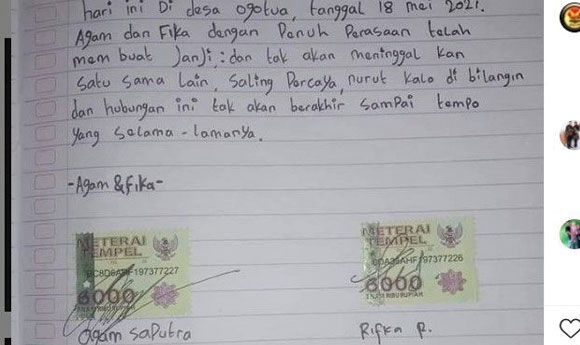 hari ini Di desa ogotua, tanggal 18 mei 2021.
Agam dan Fika dengan Penuh Perasaan telah
mem buat Janji : dan tak akan meninggal kan
satu sama lain, saling Percaya, nurut kalo di bilangin
dan hubungan ini tak akan berakhir sampai tempo
yang selama - lamanya.
-Agam & Fika-
METERAI
TEMPEL
197377227
6000
ENAM RIBU RUPIAH
Agam Saputra
METERAI
TEMPEL
AHF197377226
6000
ENAM RIBU RUPIAH
Rifka R.